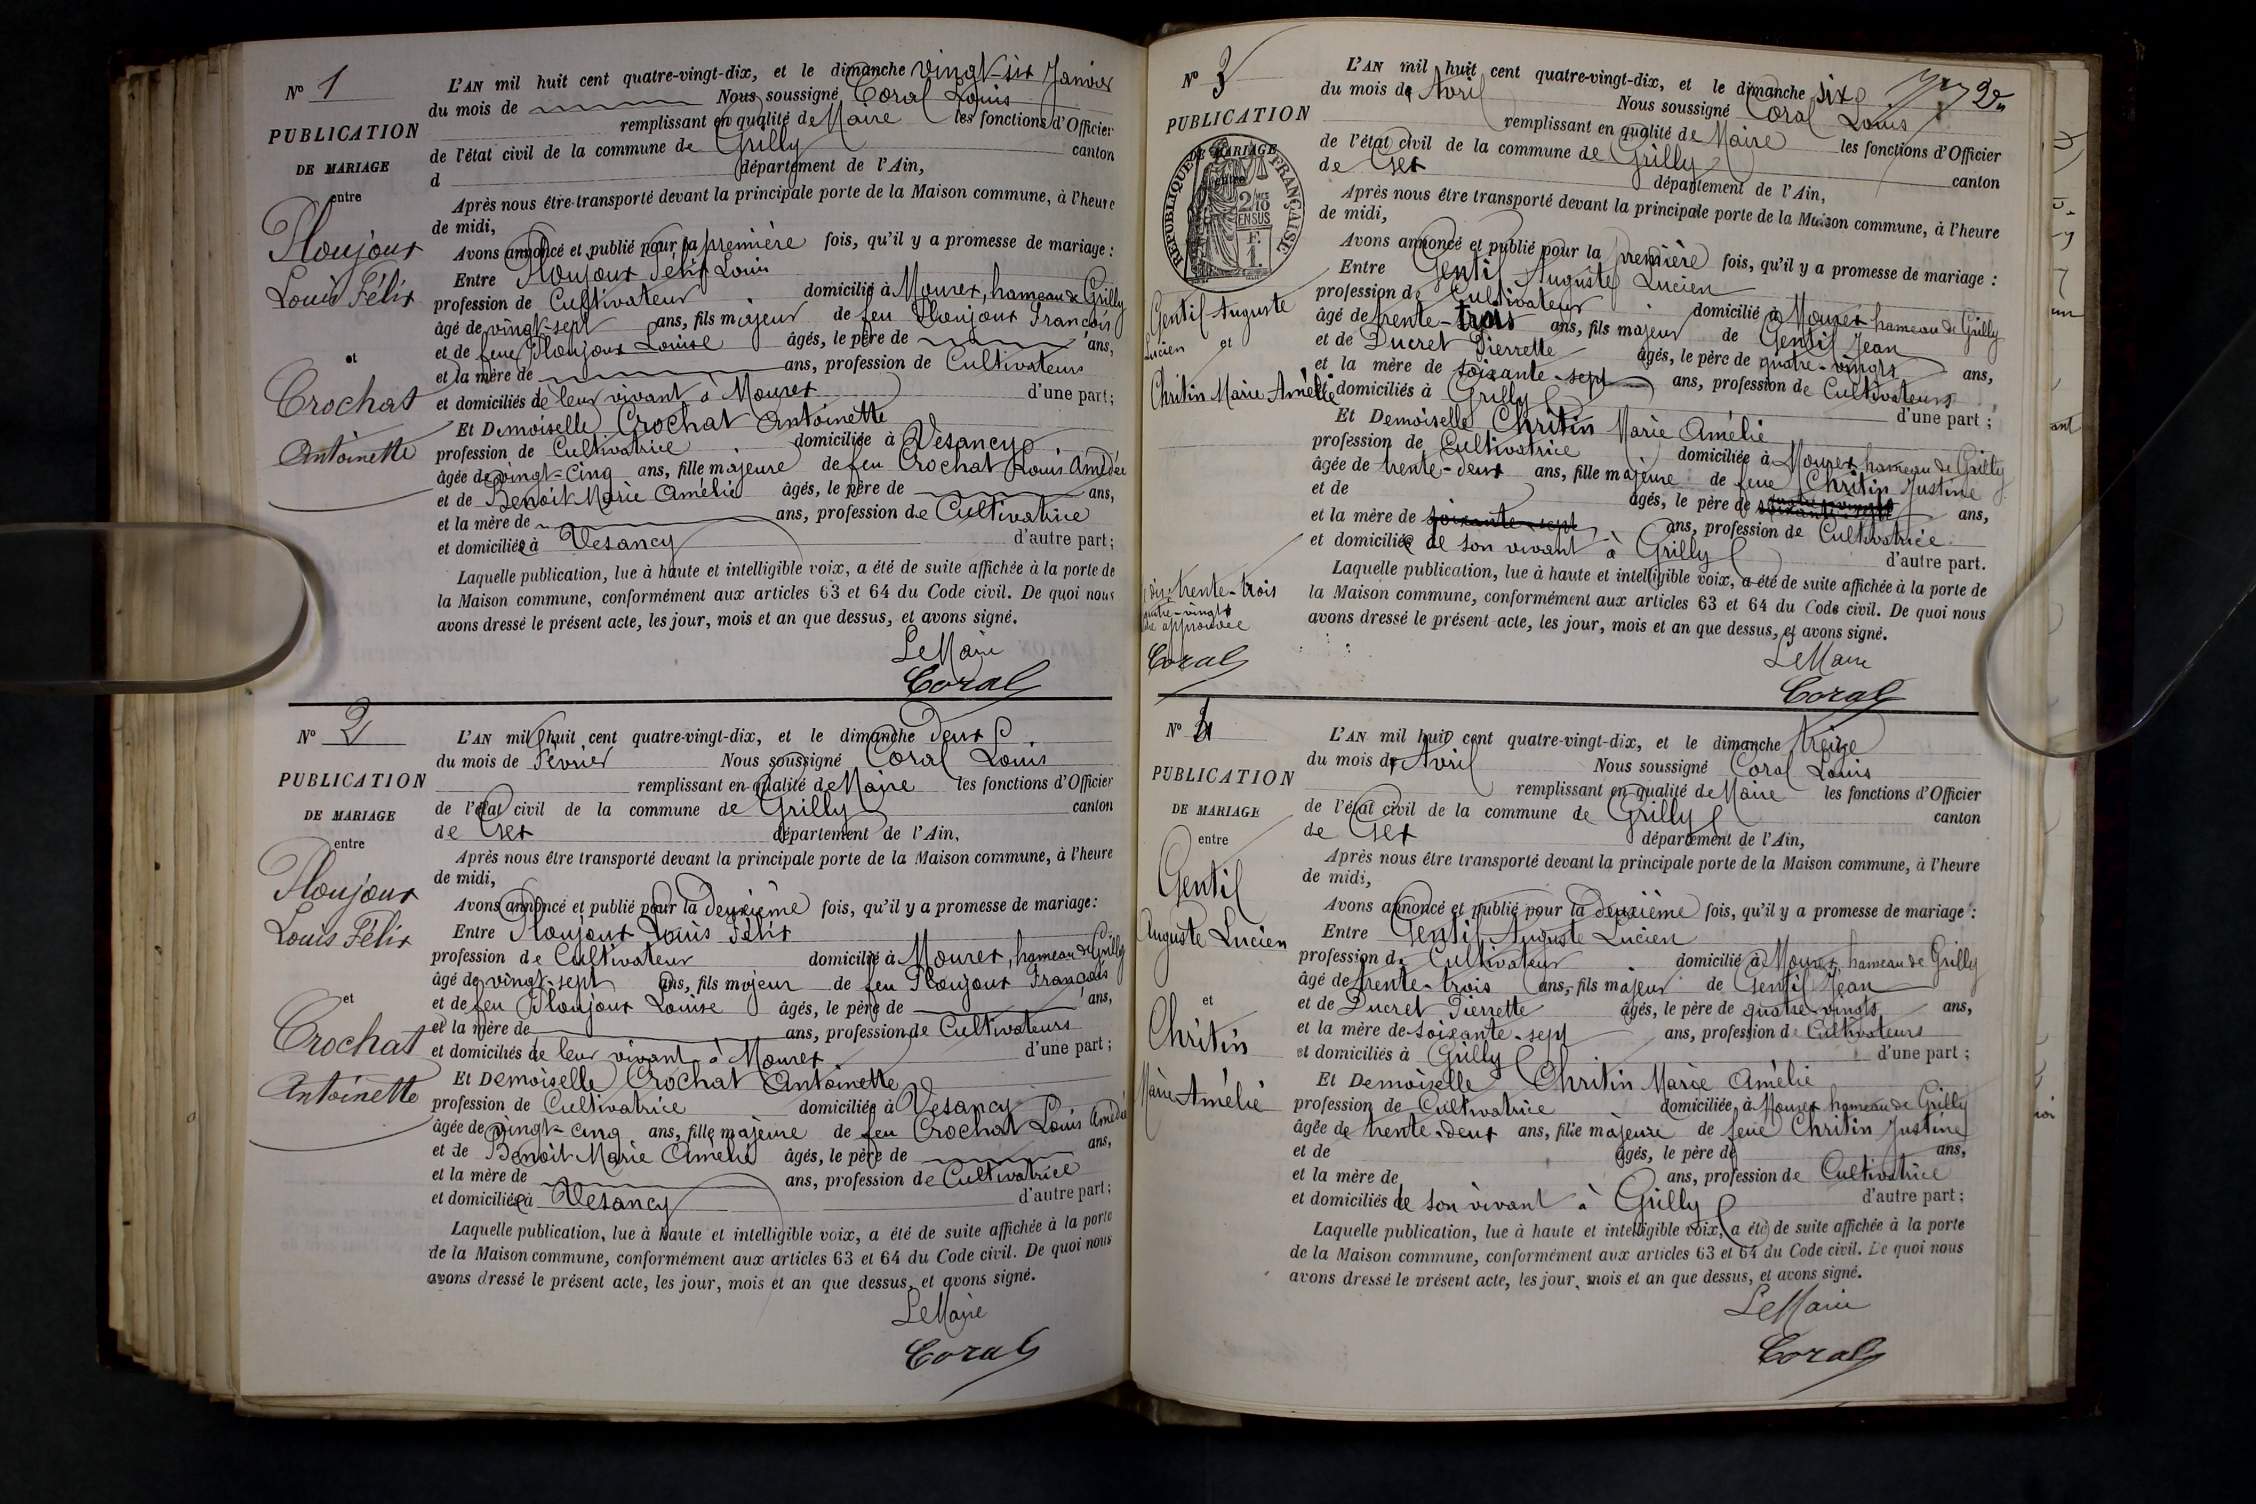 N° 1
PUBLICATION
DE MARIAGE
entre
Ploujoux
Louis Félix
et
Crochat
Antoinette
L'AN mil huit cent quatre-vingt-dix, et le dimanche vingt-six Janvier
du mois de Nous soussigné Coral Louis
remplissant en qualité de Maire les fonctions d'Officier
de l'état civil de la commune de Grilly canton
d département de l'Ain,
Après nous être transporté devant la principale porte de la Maison commune, à l'heure
de midi,
Avons annoncé et publié pour la première fois, qu'il y a promesse de mariage :
Entre Ploujoux Felix Louis
profession de Cultivateur domicilié à Mourex, hameau de Grilly
âgé de vingt-sept ans, fils majeur de feu Ploujoux François
et de feue Ploujoux Louise âgés, le père de ans,
et la mère de ans, profession de Cultivateurs
et domiciliés de leur vivant à Mourex d'une part;
Et Demoiselle Crochat Antoinette
profession de Cultivatrice domiciliée à Vesancy
âgée de vingt-cinq ans, fille majeure de feu Crochat Louis Amédée
et de Benoit Marie Amélie âgés, le père de ans,
et la mère de ans, profession de Cultivatrice
et domiciliée à Vesancy d'autre part;
Laquelle publication, lue à haute et intelligible voix, a été de suite affichée à la porte de
la Maison commune, conformément aux articles 63 et 64 du Code civil. De quoi nous
avons dressé le présent acte, les jour, mois et an que dessus, et avons signé.
Le Maire
Coral
N° 2
PUBLICATION
DE MARIAGE
entre
Ploujoux
Louis Félix
et
Crochat
Antoinette
L'AN mil huit cent quatre-vingt-dix, et le dimanche deux
du mois de Février Nous soussigné Coral Louis
remplissant en qualité de Maire les fonctions d'Officier
de l'état civil de la commune de Grilly canton
de Gex département de l'Ain,
Après nous être transporté devant la principale porte de la Maison commune, à l'heure
de midi,
Avons annoncé et publié pour la deuxième fois, qu'il y a promesse de mariage:
Entre Ploujoux Louis Félix
profession de Cultivateur domicilié à Mourex, hameau de Grilly
âgé de vingt-sept ans, fils majeur de feu Ploujoux François
et de feu Ploujoux Louise âgés, le père de ans,
et la mère de ans, profession de Cultivateurs
et domiciliés de leur vivant à Mourex d'une part;
Et Demoiselle Crochat Antoinette
profession de Cultivatrice domiciliée à Vesancy
âgée de vingt-cinq ans, fille majeure de feu Crochat Louis Amédée
et de Benoit Marie Amelie âgés, le père de ans,
et la mère de ans, profession de Cultivatrice
et domiciliée à Vesancy d'autre part;
Laquelle publication, lue à haute et intelligible voix, a été de suite affichée à la porte
de la Maison commune, conformément aux articles 63 et 64 du Code civil. De quoi nous
avons dressé le présent acte, les jour, mois et an que dessus, et avons signé.
Le Maire
Coral
N° 3
PUBLICATION
DE MARIAGE
entre
RÉPUBLIQUE FRANÇAISE
2/10
EN SUS
F.
1.
Gentil Auguste
Lucien et
Chritin Marie Amélie
L'AN mil huit cent quatre-vingt-dix, et le dimanche six
du mois de Avril Nous soussigné Coral Louis
remplissant en qualité de Maire les fonctions d'Officier
de l'état civil de la commune de Grilly canton
de Gex département de l'Ain,
Après nous être transporté devant la principale porte de la Maison commune, à l'heure
de midi,
Avons annoncé et publié pour la première fois, qu'il y a promesse de mariage :
Entre Gentil Auguste Lucien
profession de Cultivateur domicilié à Mourex hameau de Grilly
âgé de trente-trois ans, fils majeur de Gentil Jean
et de Ducret Pierrette âgés, le père de quatre-vingts ans,
et la mère de soixante-sept ans, profession de Cultivateurs
et domiciliés à Grilly d'une part ;
Et Demoiselle Chritin Marie Amélie
profession de Cultivatrice domiciliée à Mourex hameau de Grilly
âgée de trente-deux ans, fille majeure de feue Chritin Justine
et de âgés, le père de ans,
et la mère de soixante-sept ans, profession de Cultivatrice
et domiciliée de son vivant à Grilly d'autre part.
Laquelle publication, lue à haute et intelligible voix, a été de suite affichée à la porte de
la Maison commune, conformément aux articles 63 et 64 du Code civil. De quoi nous
avons dressé le présent acte, les jour, mois et an que dessus, et avons signé.
trente-trois
approuvée
Coral
Le Maire
Coral
N° 4
PUBLICATION
DE MARIAGE
entre
Gentil
Auguste Lucien
et
Chritin
Marie Amélie
L'AN mil huit cent quatre-vingt-dix, et le dimanche treize
du mois de Avril Nous soussigné Coral Louis
remplissant en qualité de Maire les fonctions d'Officier
de l'état civil de la commune de Grilly canton
de Gex département de l'Ain,
Après nous être transporté devant la principale porte de la Maison commune, à l'heure
de midi,
Avons annoncé et publié pour la deuxième fois, qu'il y a promesse de mariage :
Entre Gentil Auguste Lucien
profession de Cultivateur domicilié à Mourex, hameau de Grilly
âgé de trente-trois ans, fils majeur de Gentil Jean
et de Ducret Pierrette âgés, le père de quatre-vingts ans,
et la mère de soixante-sept ans, profession de Cultivateurs
et domiciliés à Grilly d'une part ;
Et Demoiselle Chritin Marie Amélie
profession de Cultivatrice domiciliée à Mourex hameau de Grilly
âgée de trente-deux ans, fille majeure de feue Chritin Justine
et de âgés, le père de ans,
et la mère de ans, profession de Cultivatrice
et domiciliés de son vivant à Grilly d'autre part ;
Laquelle publication, lue à haute et intelligible voix, a été de suite affichée à la porte
de la Maison commune, conformément aux articles 63 et 64 du Code civil. De quoi nous
avons dressé le présent acte, les jour, mois et an que dessus, et avons signé.
Le Maire
Coral